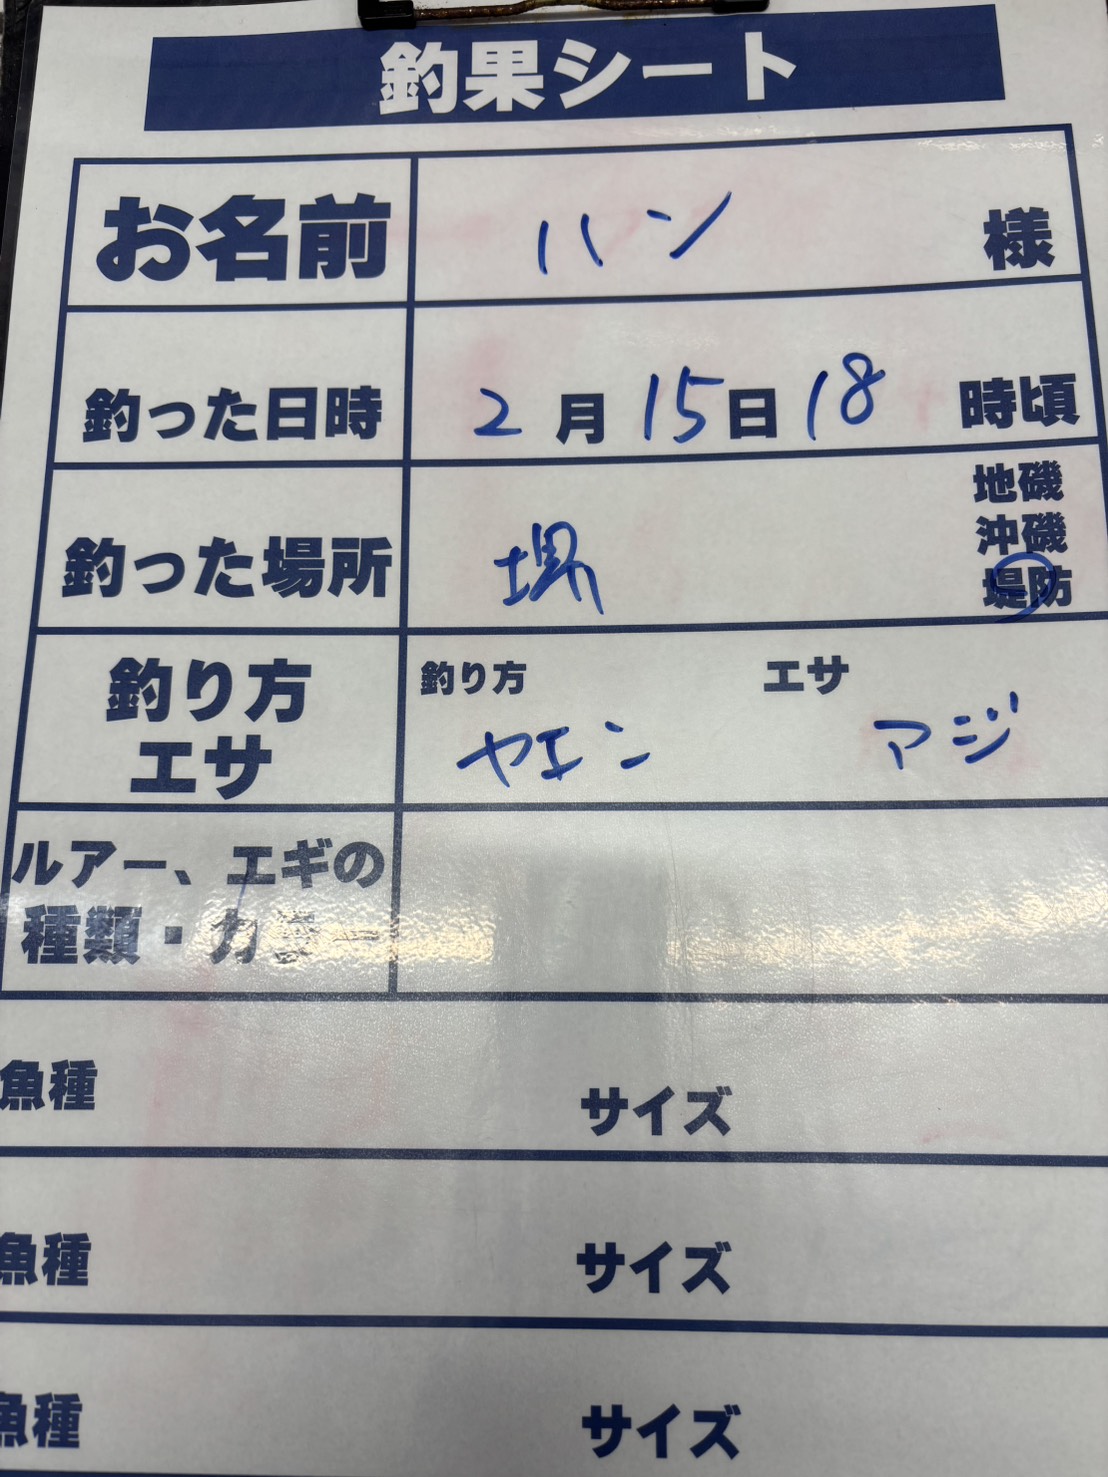 釣果シート
お名前 ハン 様
釣った日時 2月15日18時頃
釣った場所 堺
地磯
沖磯
堤防
釣り方
エサ
釣り方 エサ
ヤエン アジ
ルアー、エギの
種類・カラー
魚種 サイズ
魚種 サイズ
魚種 サイズ